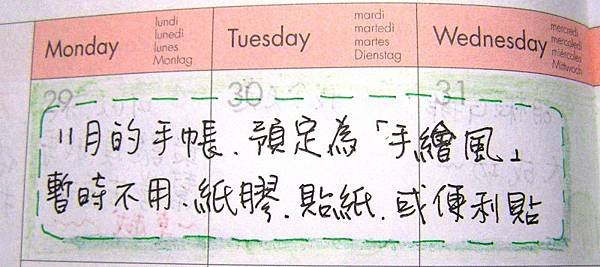 Monday lundi lunedì lunes Montag Tuesday mardi martedì martes Dienstag Wednesday mercredi mercoledì miércoles Mittwoch
29 30 31
11月的手帳、預定為「手繪風」
暫時不用、紙膠、貼紙、或便利貼